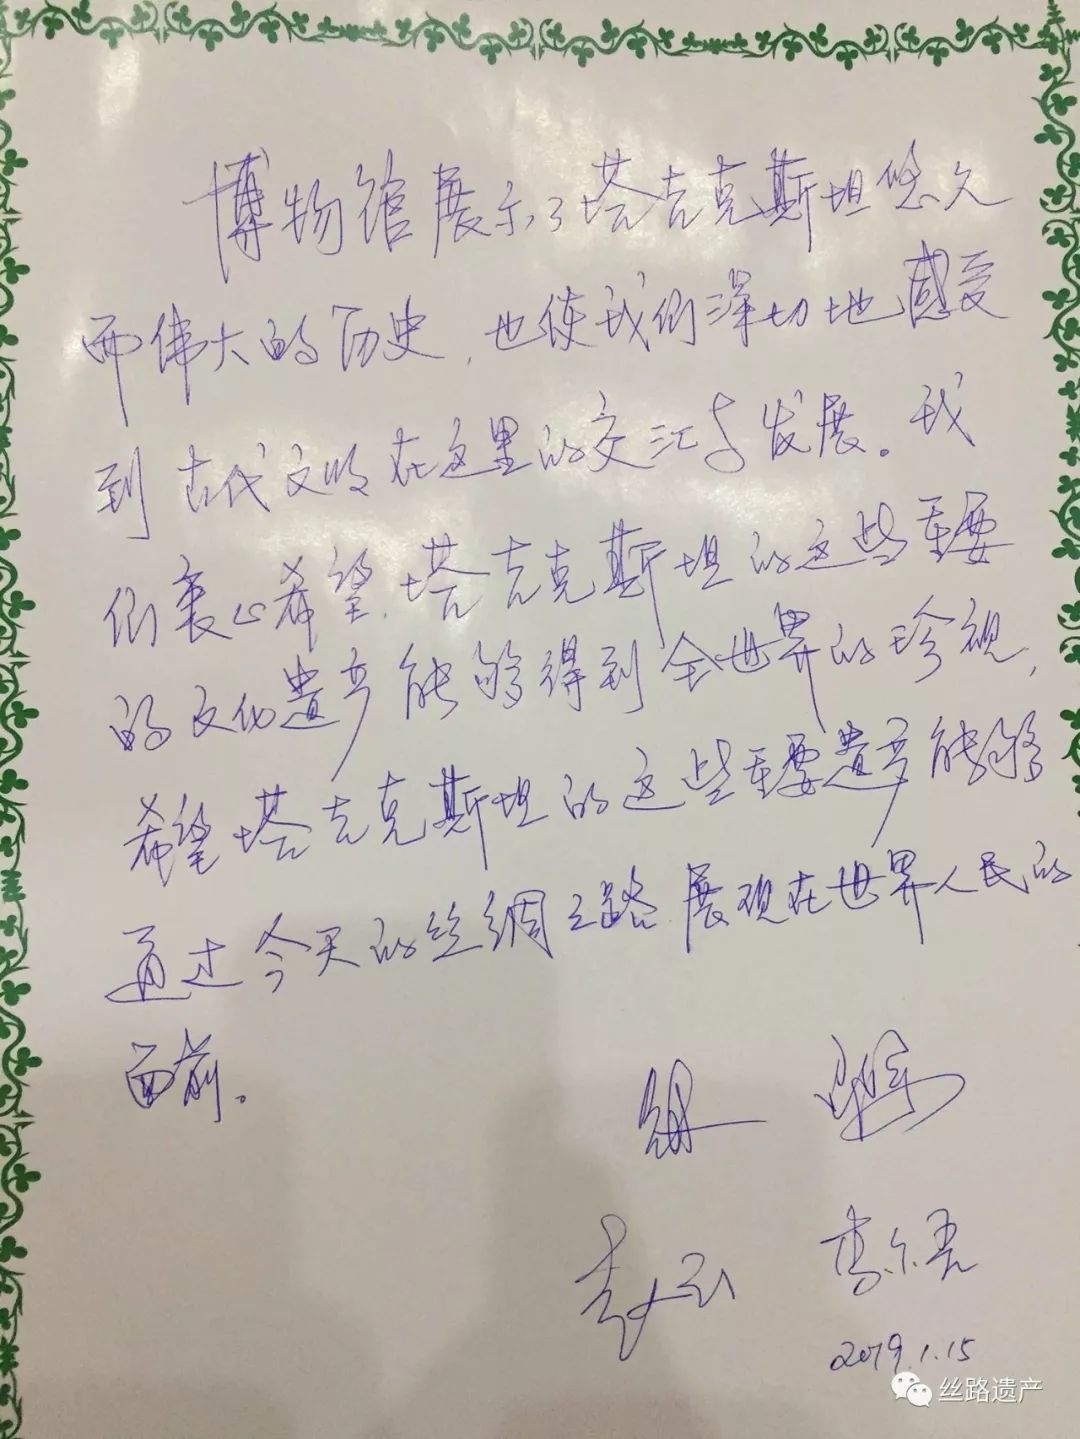 博物馆展示了塔吉克斯坦悠久
而伟大的历史，也使我们深切地感受
到古代文明在这里的交汇与发展。我
们衷心希望，塔吉克斯坦的这些重要
的文化遗产能够得到全世界的珍视，
希望塔吉克斯坦的这些重要遗产能够
通过今天的丝绸之路展现在世界人民的
面前。
赵云
2019.1.15
丝路遗产